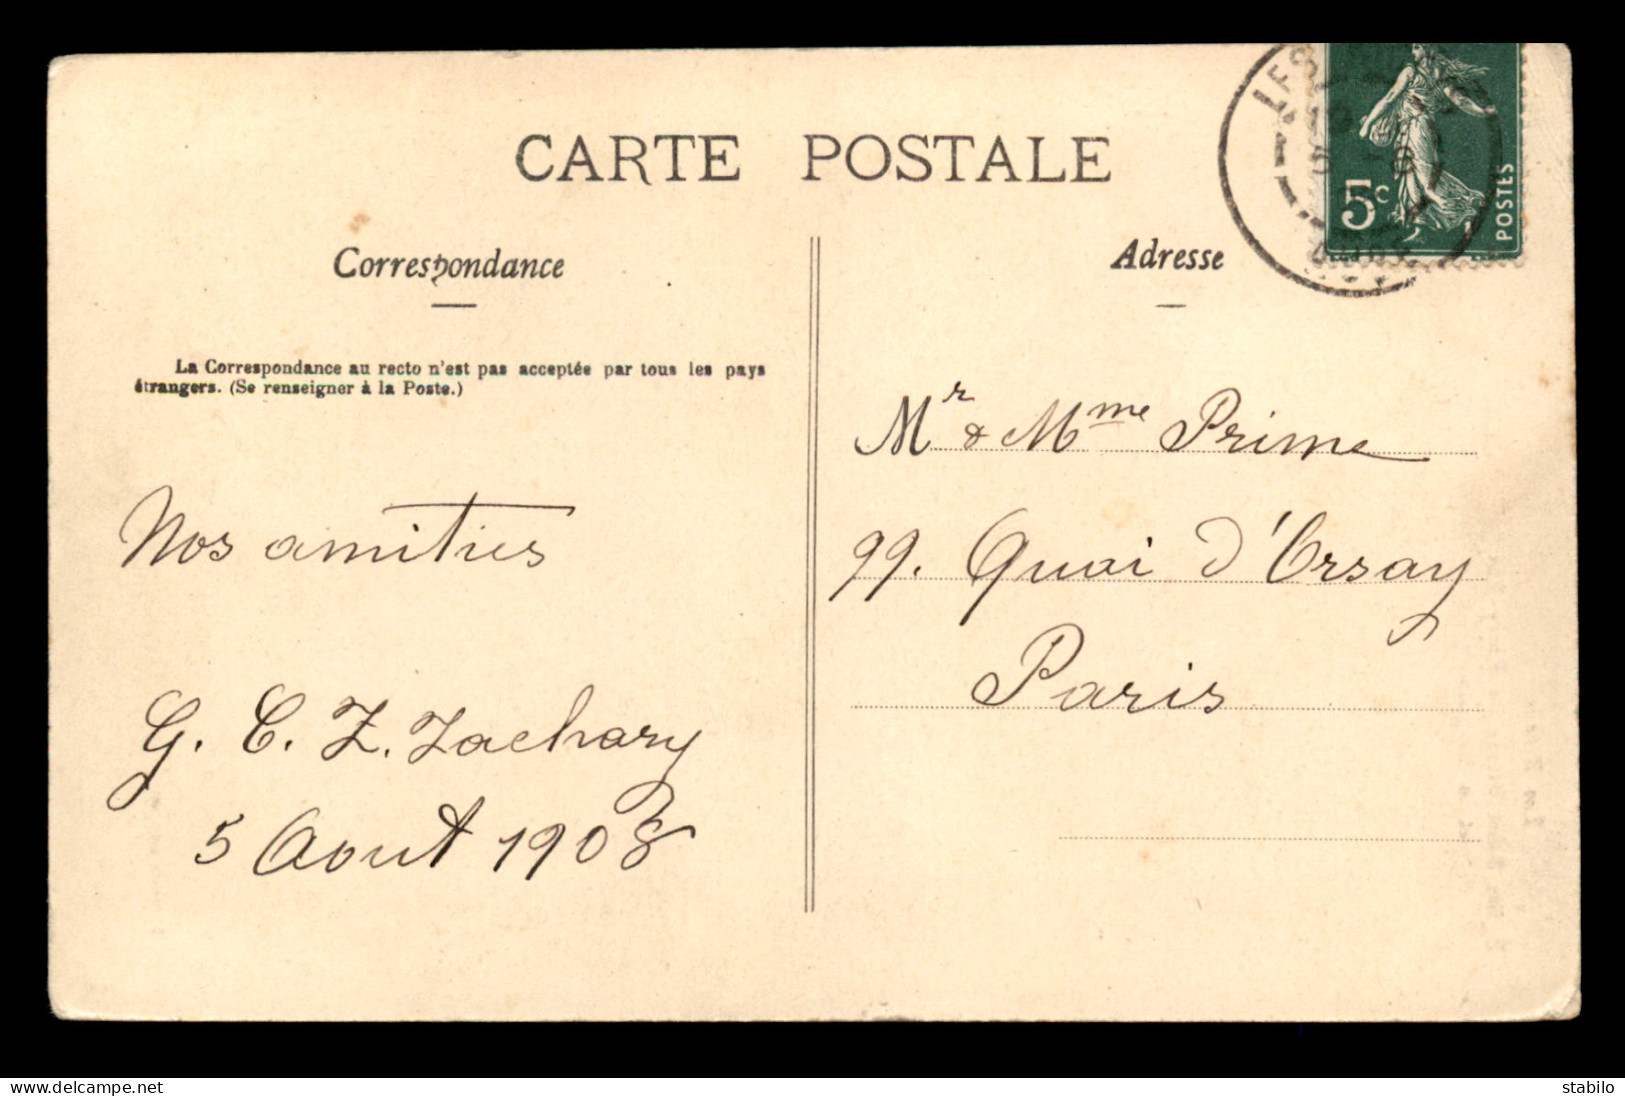 CARTE POSTALE
Correspondance
La Correspondance au recto n'est pas acceptée par tous les pays
étrangers. (Se renseigner à la Poste.)
Nos amitiés
G. C. Z. Zachary
5 Aout 1908
Adresse
5c
POSTES
LES
Mr & Mme Prime
99. Quai d'Orsay
Paris
www.delcampe.net
stabilo